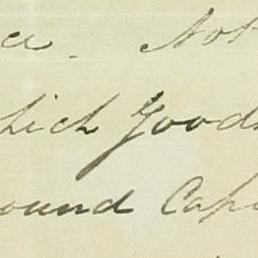 Not
hich Goods
ound Cap